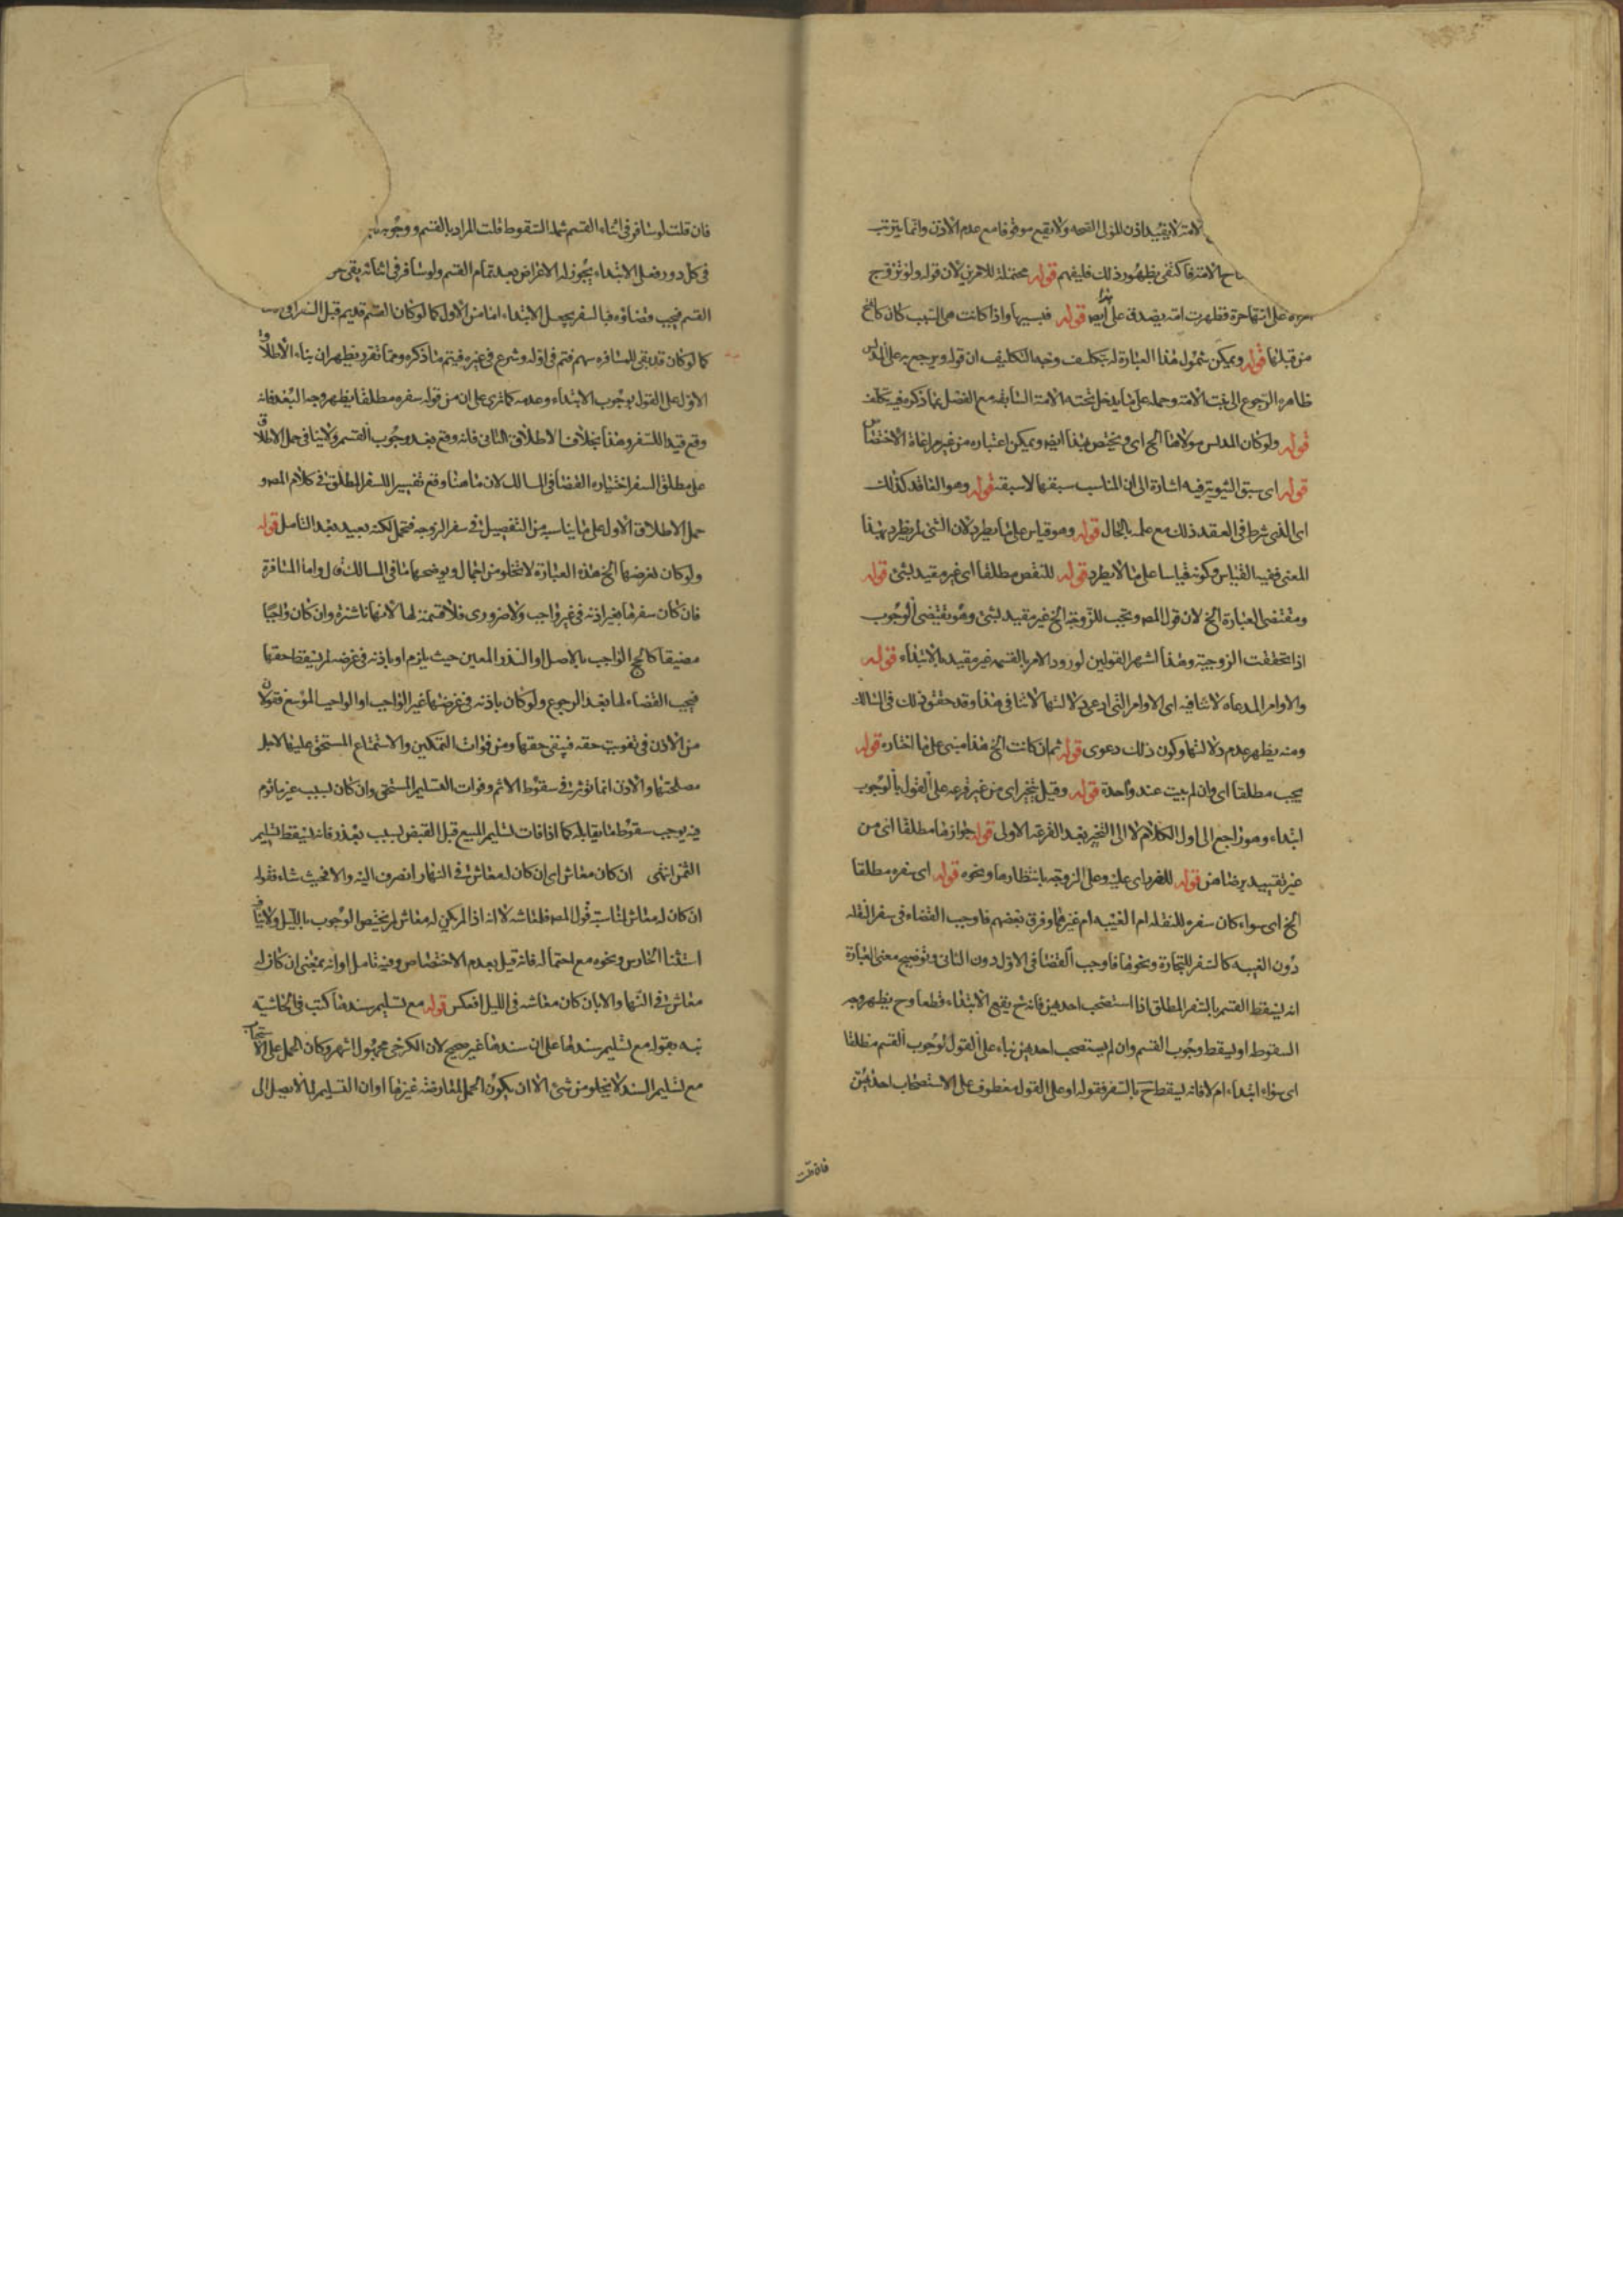 الامة لا يقيد اذن المولى الصحه ولا يقع موقوفا مع عدم الاذن وانما يترتب
الامة فاكتفى بظهور ذلك فليفهم قوله محتملة للامرين لان قوله ولو تزوج
على انها حرة فظهرت امة يصدق على ايض قوله فبسببها واذا كانت هى السبب كان كالخ
من قبلها قوله ويمكن شمول هذا العبارة له بتكليف وجه التكليف ان قوله ويرجع به على المدلس
ظاهره الرجوع الى بنت الامة وحمله على ما يدخل تحته الامة السابقه مع الفصل بما ذكره فيه تكلف
قوله ولو كان المدلس مولاها الخ اى ويختص بهذا ايض ويمكن اعتباره من غير مراعاة الاختصاص
قوله اى سبق الثيوبة فيه اشارة الى ان المناسب سبقها لا سبقه قوله وهو الفاقد كذلك
اى الذى شرط فى العقد ذلك مع علمه بالحال قوله وهو قياس على ما يطرد لان الشئ لم يطرد بهذا
المعنى ففيه القياس وكونه قياسا على ما لا يطرد قوله للنقص مطلقا اى غير مقيد بشئ قوله
ومقتضى العبارة الخ لان قول المصـ ويجب للزوجة الخ غير مقيد بشئ وهو يقتضى الوجوب
اذا تحققت الزوجية وهذا اشهر القولين لورود الامر بالقسمه غير مقيد بالابتداء قوله
والاوامر المدعاه لا تنافيه اى الاوامر التى ادعى دلالتها لا تنافى هذا وقد حقق ذلك فى المسالك
ومنه يظهر عدم دلالتها وكون ذلك دعوى قوله ثم ان كانت الخ هذا مبنى على ما اختاره قوله
يجب مطلقا اى وان لم يبت عند واحدة قوله وقيل يتخير اى من غير قرعه على القول بالوجوب
ابتداء وهو راجع الى اول الكلام لا الى التخيير بعد القرعة الاولى قوله جوازها مطلقا اى من
غير تقييد برضاهن قوله للضرر اى عليه وعلى الزوجة بانتظارها ونحوه قوله اى سفره مطلقا
الخ اى سواء كان سفره للنقله ام الغيبه ام غيرهما وفرق بعضهم فاوجب القضاء فى سفر النقله
دون الغيبه كالسفر للتجارة ونحوها فاوجب القضا فى الاول دون الثانى وتوضيح معنى العبارة
انه يسقط القسم بالسفر المطلق اذا استصحب احديهن فانه ح يقع الابتداء قطعا وح يظهر وجه
السقوط او يسقط وجوب القسم وان لم يستصحب احديهن بناء على القول بوجوب القسم مطلقا
اى سواء ابتداء ام لا فانه يسقط ح بالسفر فقوله او على القول معطوف على الاستصحاب احديهن
فان قلت
فان قلت لو سافر فى اثناء القسم شمله السقوط قلت المراد بالقسم ووجوبه
فى كل دور فعلى الابتداء يجوز له الاعراض بعد تمام القسم ولو سافر فى اثنائه بقى حق
القسم فيجب قضاؤه فبالسفر يحصل الابتداء اما من الاول كما لو كان القسم قد تم قبل السفر
كما لو كان قد بقى للمسافره سهم فتم فى اوله وشرع فى غيره فيتم ما ذكره ومما تقرر يظهر ان بناء الاطلاق
الاول على القول بوجوب الابتداء وعدمه كما ترى على ان من قوله سفره مطلقا يظهر وجه البعد فانه
وقع قيدا للسفر وهذا بخلاف الاطلاق الثانى فانه وقع بعد وجوب القسم ولا ينافى حمل الاطلاق
على مطلق السفر اختياره القضا فى المسالك لان ما هنا وقع تفسيرا للسفر المطلق فى كلام المصـ و
حمل الاطلاق الاول على ما يناسبه من التفصيل فى سفر الزوجه فتحمل لكنه بعيد بعد التامل قوله
ولو كان لغرضها الخ هذه العبارة لا تخلو من اجمال ويوضحها ما فى المسالك قال واما المسافرة
فان كان سفرها بغير اذنه فى غير واجب ولا ضرورى فلا قسمة لها لانها ناشزة وان كان واجبا
مضيقا كالحج الواجب بالاصل او النذر المعين حيث يلزم او باذنه فى غرضه لم يسقط حقها
فيجب القضاء لها بعد الرجوع ولو كان باذنه فى غرضها غير الواجب او الواجب الموسع فقولان
من الاذن فى تفويت حقه فيبقى حقها ومن فوات التمكين والاستمتاع المستحق عليها لاجل
مصلحتها والاذن انما تؤثر فى سقوط الاثم وفوات التسليم المستحق وان كان بسبب غير ماثوم
فيه يوجب سقوط ما يقابله كما اذا فات تسليم المبيع قبل القبض بسبب يعذر فانه يسقط تسليم
الثمن انتهى ان كان معاش اى ان كان له معاش فى النهار انصرف اليه والا فحيث شاء فقوله
ان كان له معاش لمناسبة قول المصـ فلمعاشه لا انه اذا لم يكن له معاش لم يختص الوجوب بالليل ولا ينافى
استثنا الحارس ونحوه مع احتماله فانه قيل بعدم الاختصاص وفيه تامل او انه بمعنى ان كان له
معاش فى النهار والا بان كان معاشه فى الليل انعكس قوله مع تسليم سندها كتب فى الحاشيه
نبه بقوله مع تسليم سندها على ان سندها غير صحيح لان الكرخى مجهول اشهر وكان الحمل على الاستحباب
مع تسليم السند لا يخلو من شئ الا ان يكون الحمل لمعارضة غيرها او ان التسليم لما لا يصل الى